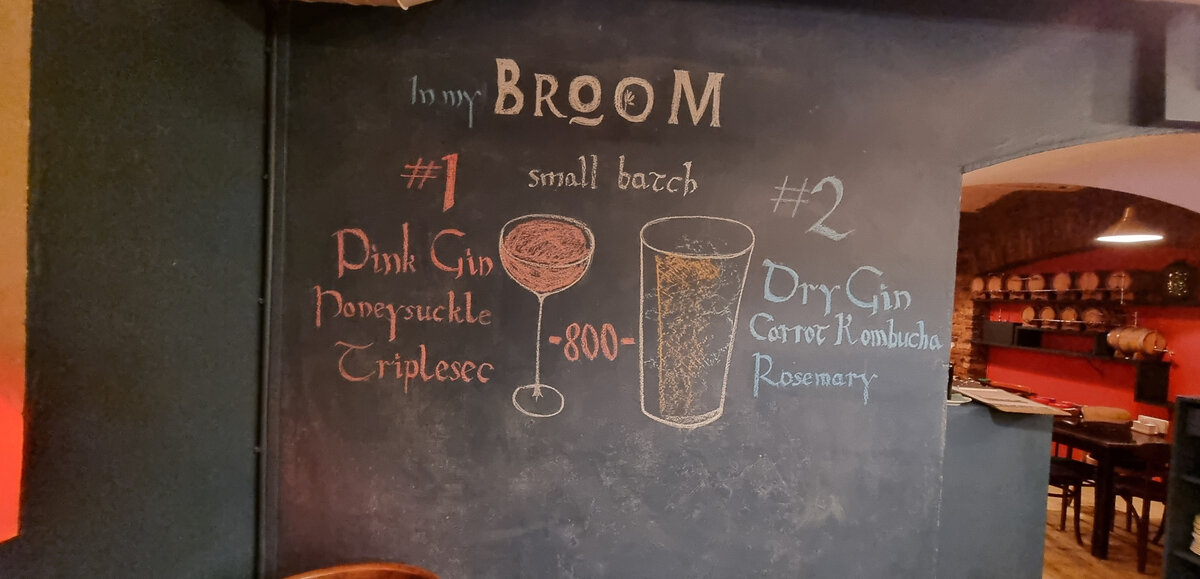 In my BROOM
small batch
#1
Pink Gin
Honeysuckle
Triplesec
-800-
#2
Dry Gin
Carrot Kombucha
Rosemary